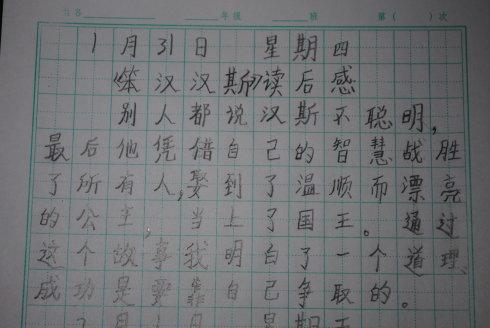 年级 班 第( )次
1月31日 星期四
《笨汉汉斯》读后感
别人都说汉斯不聪明,
最后他凭借自己的智慧战胜
了所有人,娶到了温顺而漂亮
的公主,当上了国王。通过
这个故事我明白了一个道理、
成功是要靠自己争取的。